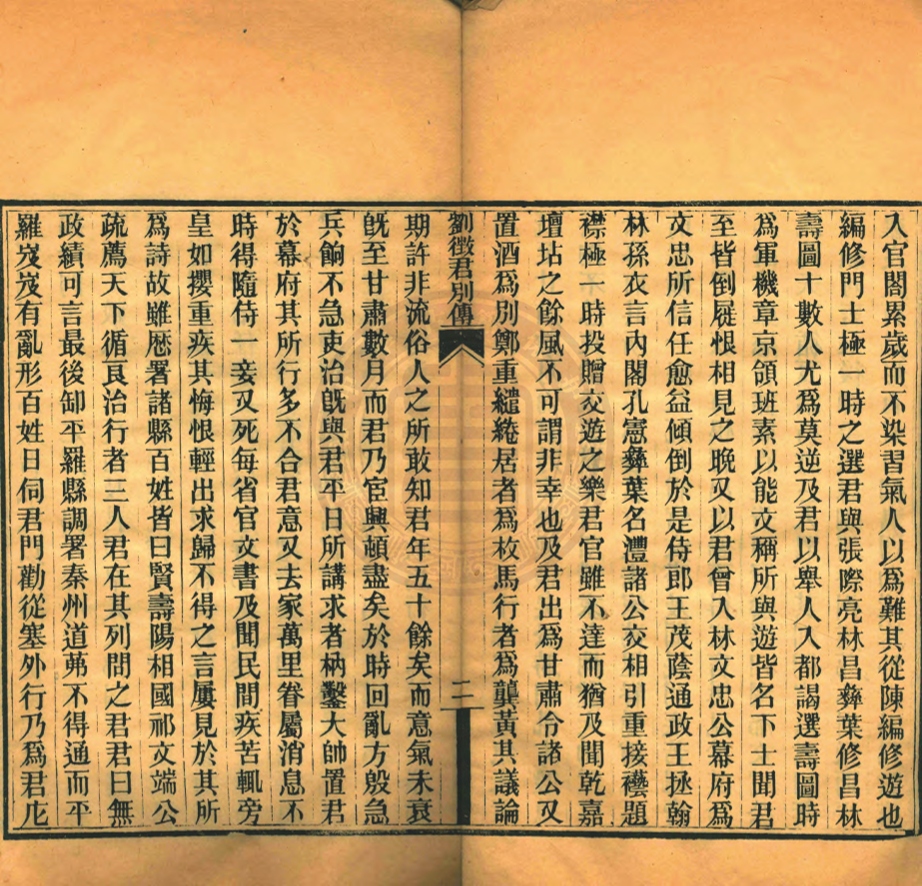 入官閣累歲而不染習氣人以爲難其從陳編修遊也
編修門士極一時之選君與張際亮林昌彝葉修昌林
壽圖十數人尤爲莫逆及君以舉人入都謁選壽圖時
爲軍機章京領班素以能文稱所與遊皆名下士聞君
至皆倒屣恨相見之晚又以君曾入林文忠公幕府爲
文忠所信任愈益傾倒於是侍郎王茂蔭通政王拯翰
林孫衣言內閣孔憲彝葉名灃諸公交相引重接襼題
襟極一時投贈交遊之樂君官雖不達而猶及聞乾嘉
壇坫之餘風不可謂非幸也及君出爲甘肅令諸公又
置酒爲別鄭重繾綣居者爲枚馬行者爲龔黃其議論
劉徵君別傳
二
期許非流俗人之所敢知君年五十餘矣而意氣未衰
旣至甘肅數月而君乃宦興頓盡矣於時回亂方殷急
兵餉不急吏治旣與君平日所講求者枘鑿大帥置君
於幕府其所行多不合君意又去家萬里眷屬消息不
時得隨侍一妾又死每省官文書及聞民間疾苦輒旁
皇如攖重疾其悔恨輕出求歸不得之言屢見於其所
爲詩故雖歷署諸縣百姓皆曰賢壽陽相國祁文端公
疏薦天下循良治行者三人君在其列問之君君曰無
政績可言最後卸平羅縣調署秦州道茀不得通而平
羅岌岌有亂形百姓日伺君門勸從塞外行乃爲君庀